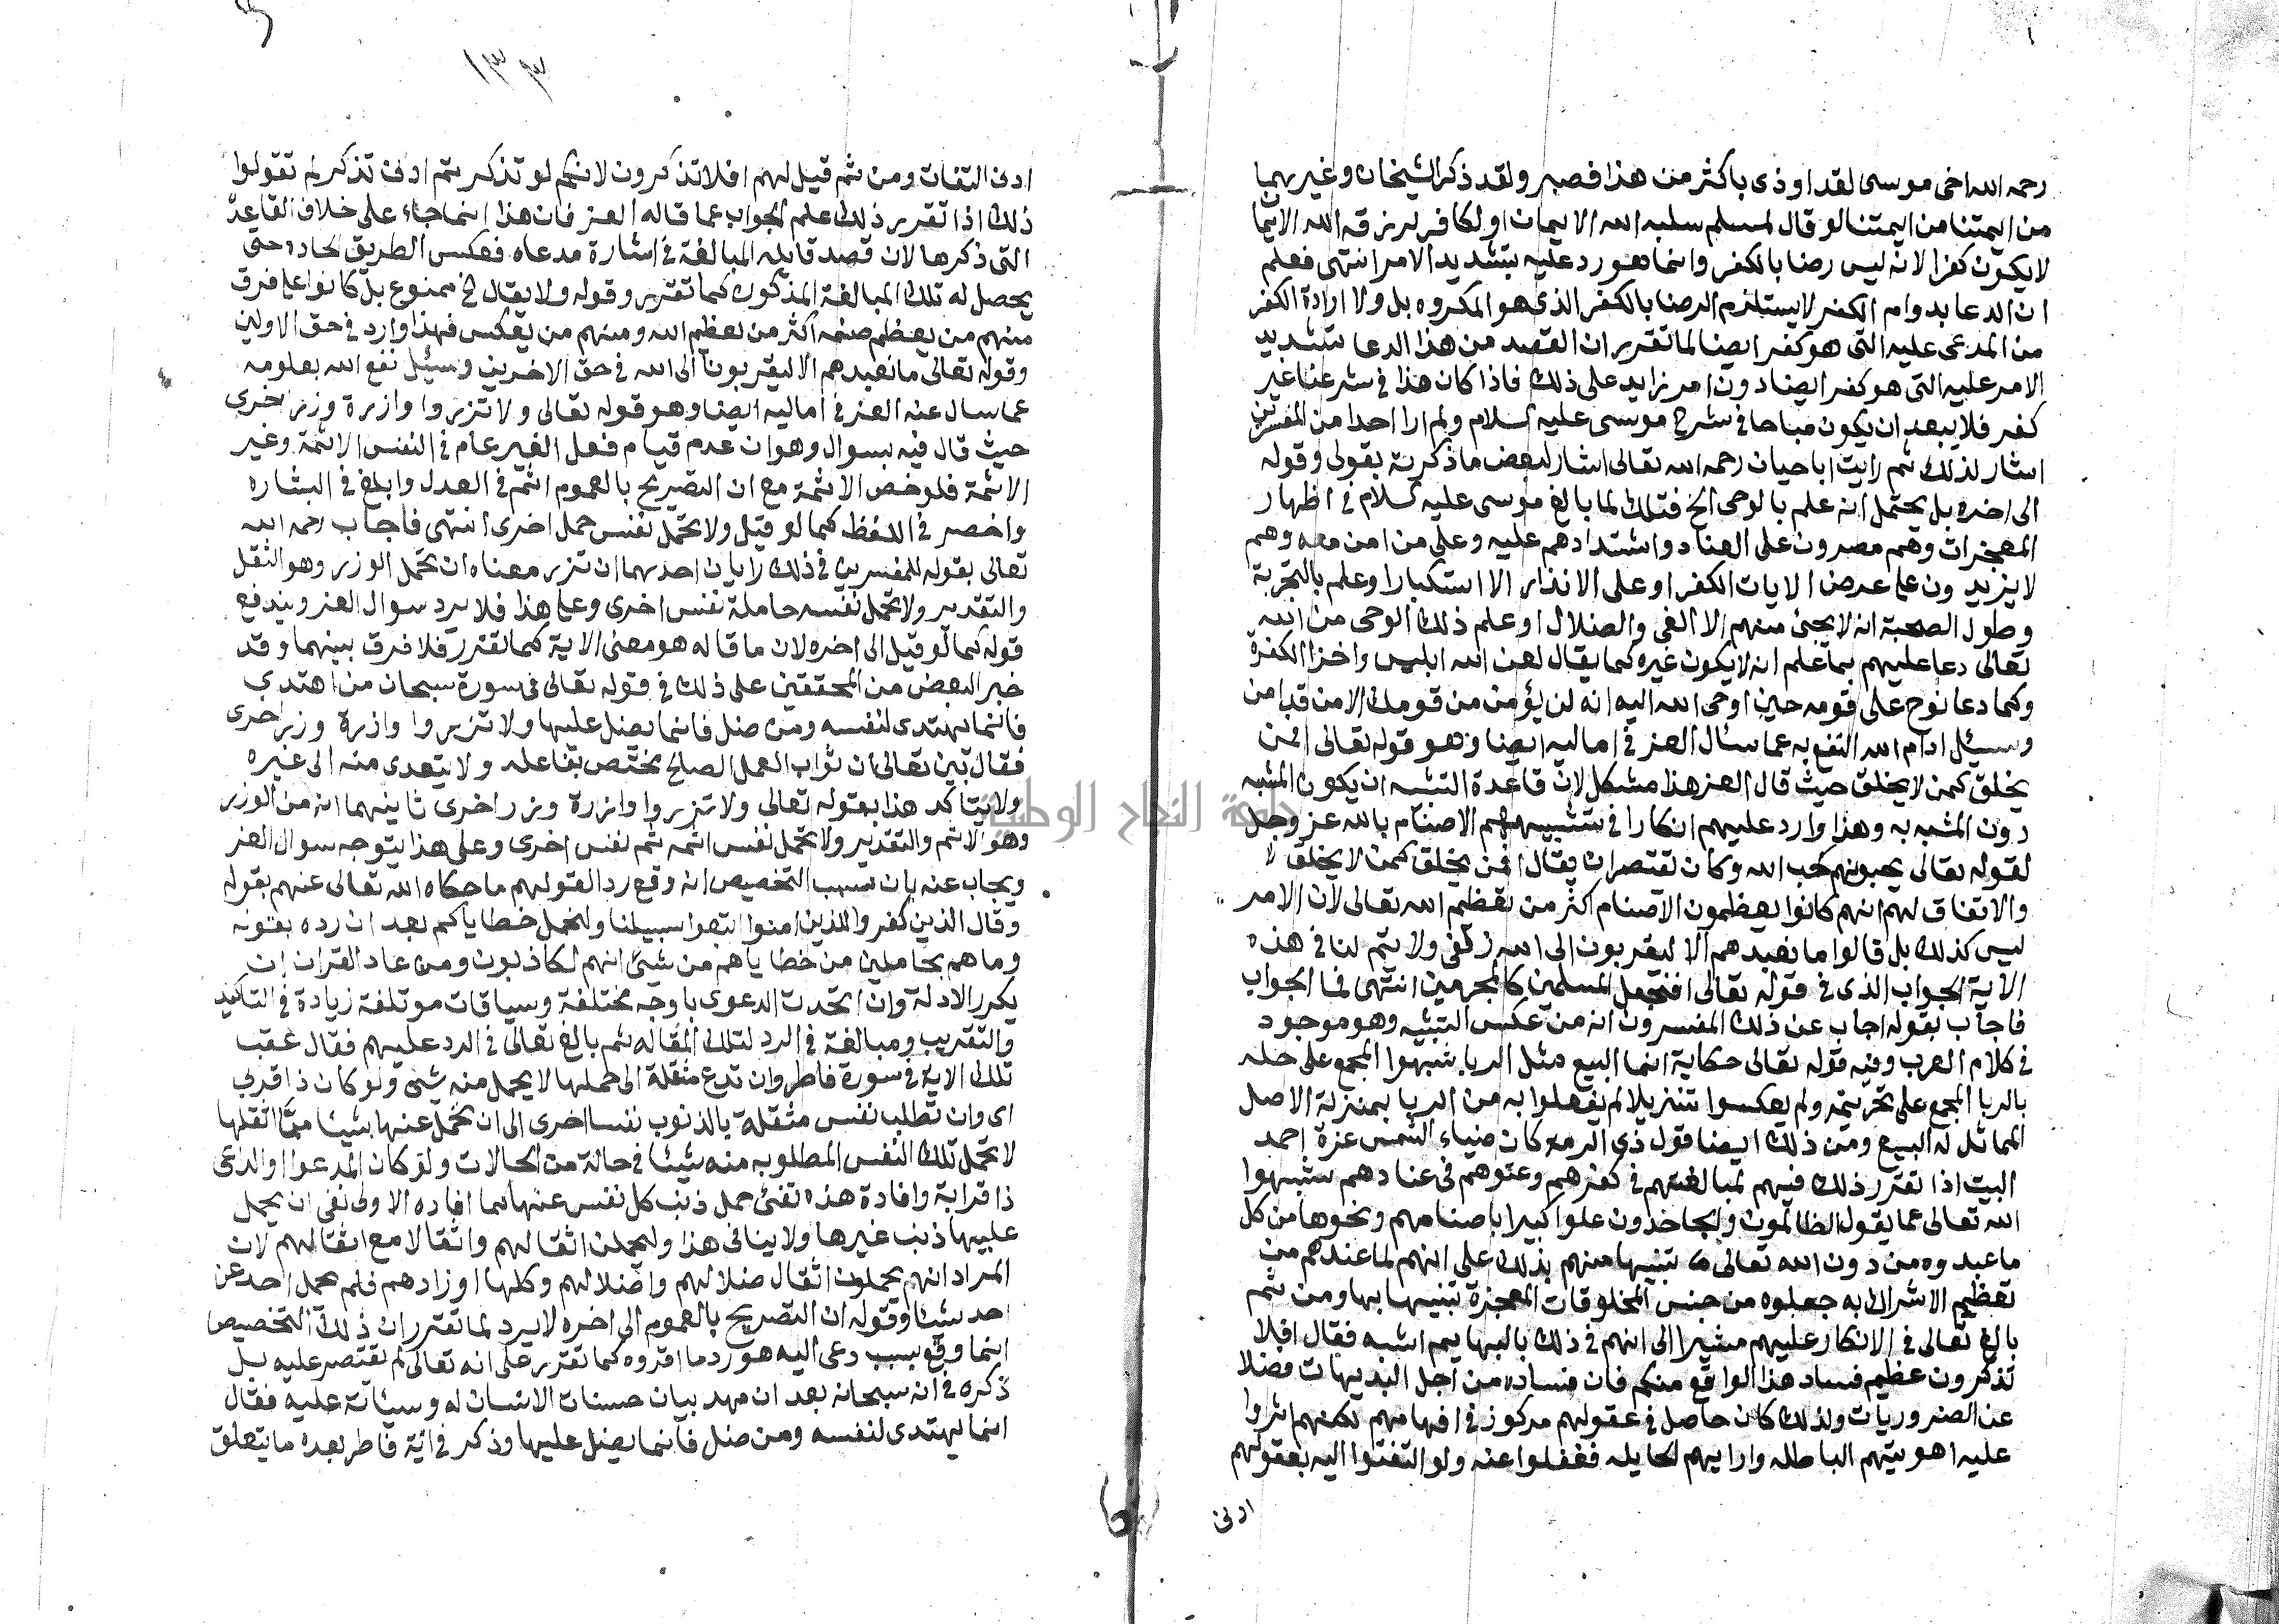 ١٣٣
رحمه الله اخى موسى لقد اوذى باكثر من هذا فصبر ولقد ذكر الشيخان وغيرهما
من ايمتنا من ايمتنا لو قال لمسلم سلبه الله الايمان او لكافر لارزقه الله الايمان
لا يكون كفرا لانه ليس رضا بالكفر وانما هو رد عليه بتشديد الامر انتهى فعلم
ان الدعا بدوام الكفر لا يستلزم الرضا بالكفر الذى هو المكروه بل ولا ارادة الكفر
من المدعى عليه التى هو كفر ايضا لما تقرر ان القصد من هذا الدعا تشديد
الامر عليه التى هو كفر ايضا دون امر زايد على ذلك فاذا كان هذا فى شرعنا غير
كفر فلا يبعد ان يكون مباحا فى شرع موسى عليه السلام ولم ار احدا من المفسرين
اشار لذلك ثم رايت اباحيان رحمه الله تعالى اشار لبعض ما ذكرته بقولى وقوله
الى اخره بل يحتمل انه علم بالوحى الخ فتلك لما بالغ موسى عليه السلام فى اظهار
المعجزات وهم مصرون على العناد واشتدادهم عليه وعلى من امن معه وهم
لا يزيدون على عرض الايات الكفرا وعلى الانذار الا استكبارا وعلم بالتجربة
وطول الصحبة انه لا يجئ منهم الا الغى والضلال او علم ذلك الوحى من الله
تعالى دعا عليهم بما علم انه لا يكون غيره كما يقال لعن الله ابليس واخزا الكفرة
وكما دعا نوح على قومه حين اوحى الله اليه انه لن يؤمن من قومك الا من قد امن
وسيئل ادام الله النفع به عما سئال العز فى اماليه ايضا وهو قوله تعالى افمن
يخلق كمن لا يخلق حيث قال العز هذا مشكل لان قاعدة التشبه ان يكون المشبه
دون المشبه به وهذا وارد عليهم انكارا فى تشبيههم الاصنام بالله عز وجل
لقوله تعالى يحبونهم كحب الله وكان تقتصر ان يقال افمن يخلق كمن لا يخلق لا
والاتفاق لهم انهم كانوا يعظمون الاصنام اكثر من تعظيم الله تعالى لان الامر
ليس كذلك بل قالوا ما نعبدهم الا ليقربون الى الله زلفى ولا يتم لنا فى هذه
الاية الجواب الذى فى قوله تعالى افنجعل المسلمين كالمجرمين انتهى فما الجواب
فاجاب بقوله اجاب عن ذلك المفسرون انه من عكس التشبيه وهو موجود
فى كلام العرب وفيه قوله تعالى حكاية انما البيع مثل الربا شبهوا المجمع على حله
بالربا المجمع على تحريمه ولم يعكسوا تنزيلا لم يفعلوا به من الربا بمنزلة الاصل
المماثل له البيع ومن ذلك ايضا قول ذى الرمه كان ضياء الشمس عزة احمد
البيت اذا تقرر ذلك فنهم لمبالغتهم فى كفرهم وعتوهم فى عنادهم شبهوا
الله تعالى عما يقول الظالمون والجاحدون علوا كبيرا باصنامهم ونحوها من كل
ما عبدوه من دون الله تعالى تنبيها منهم بذلك على انهم لما عندهم من
تعظيم الاشراك به جعلوه من جنس المخلوقات المعجزة تنبيها بها ومن ثم
بالغ تعالى فى الانكار عليهم مشيرا الى انهم فى ذلك بالبها يم اشبه فقال افلا
تذكرون عظيم فساد هذا الواقع منكم فان فساده من اجل البديهات فضلا
عن الضروريات ولذلك كان حاصل فى عقولهم مركوز فى افهامهم لكنهم اثروا
عليه اهويتهم الباطله وارايهم الحايله فغفلوا عنه ولو التفتوا اليه بعقولهم
ادنى
ادنى التفات ومن ثم قيل لهم افلا تذكرون لانكم لو تذكرتم ادنى تذكر لم تقولوا
ذلك اذا تقرر ذلك علم الجواب عما قاله العز فان هذا انما جاء على خلاف القاعدة
التى ذكرها لان قصد قايله المبالغة فى اشارة مدعاه فعكس الطريق الحاد وحتى
يحصل له تلك المبالغة المذكوره كما تقرر وقوله ولا يقال الخ ممنوع بل كانوا على فرق
منهم من يعظم صنمه اكثر من تعظيم الله ومنهم من يعكس فهذا وارد فى حق الاولين
وقوله تعالى ما نعبدهم الا ليقربونا الى الله فى حق الاخرين وسيئل نفع الله بعلومه
عما سال عنه العز فى اماليه ايضا وهو قوله تعالى ولا تزروا وازرة وزر اخرى
حيث قال فيه بسوال وهو ان عدم قيام فعل الغير عام فى النفس الاثمة وغير
الاثمة فلو خص الاثمة مع ان التصريح بالعموم اتم فى العدل وابلغ فى البشاره
واخصر فى اللفظ كما لو قيل ولا تحمل نفس حمل اخرى انتهى فاجاب رحمه الله
تعالى بقوله للمفسرين فى ذلك رايان احدهما ان تزر معناه ان تحمل الوزر وهو الثقل
والتقدير ولا تحمل نفسه حاملة نفس اخرى وعلى هذا فلا يرد سوال العز ويندفع
قوله كما لو قيل الى اخره لان ما قاله هو معنى الاية كما تقرر فلا فرق بينهما وقد
خبر البعض من المحققين على ذلك فى قوله تعالى فى سورة سبحان من اهتدى
فانما يهتدى لنفسه ومن ضل فانما يضل عليها ولا تزروا وازرة وزر اخرى
فقال تبين تعالى ان ثواب العمل الصالح مختص بفاعله ولا يتعدى منه الى غيره
ولا يتاكد هذا بقوله تعالى ولا تزروا وازرة وزر اخرى ثانيهما انه من الوزر
وهو الاثم والتقدير ولا تحمل نفس اثمه ثم نفس اخرى وعلى هذا يتوجه سوال العز
ويجاب عنه بان سبب التخصيص انه وقع رد القولهم ما حكاه الله تعالى عنهم بقوله
وقال الذين كفروا للذين امنوا اتبعوا سبيلنا ولنحمل خطاياكم بعد ان رده بقوله
وما هم بحاملين من خطاياهم من شئ انهم لكاذبون ومن عاد القران ان
يكرر الادلة وان اتحدت الدعوى باوجه مختلفة وسياقات موتلفة زيادة فى التاكيد
والتقريب ومبالغة فى الرد لتلك المقاله ثم بالغ تعالى فى الرد عليهم فقال عقب
تلك الاية فى سورة فاطر وان تدع مثقلة الى حملها لا يحمل منه شئ ولو كان ذا قربى
اى وان تطلب نفس مثقلة بالذنوب نفسا اخرى الى ان تحمل عنها شيئا مما اثقلها
لا تحمل تلك النفس المطلوبه منه شيئا فى حالة من الحالات ولو كان المدعوا والداعى
ذا قرابة وافادة هذه تفئ حمل ذنب كل نفس عنها بما افاده الاولى نفى ان يحمل
عليها ذنب غيرها ولا ينافى هذا وليحملن اثقالهم واثقالا مع اثقالهم لان
المراد انهم يحملون اثقال ضلالهم واضلالهم وكلها اوزارهم فلم يحمل احد عن
احد شئا وقوله ان التصريح بالعموم الى اخره لا يرد لما تقرر ان ذلك التخصيص
انما وقع بسبب دعى اليه هو رد ما اقدوه كما تقرر على انه تعالى لم تقتصر عليه بل
ذكره فى انه سبحانه بعد ان مهد بيان حسنات الانسان له وسيئاته عليه فقال
انما يهتدى لنفسه ومن ضل فانما يضل عليها وذكر فى اية فاطر بعده ما يتعلق
جامعة النجاح الوطنية